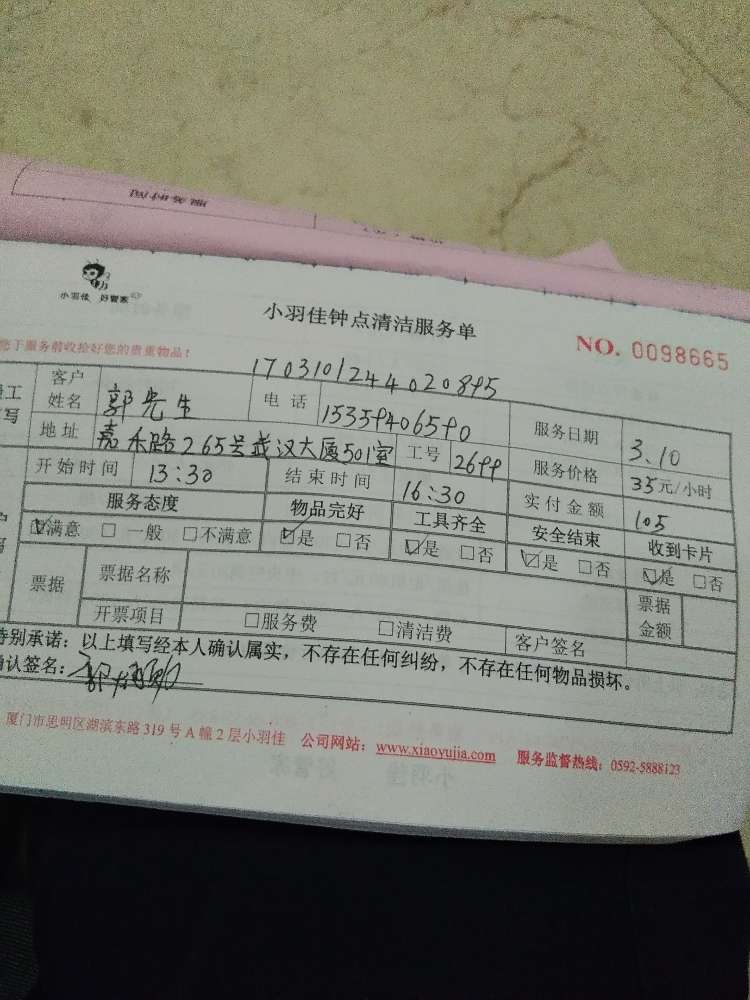 服务时间
小羽佳 好管家
小羽佳钟点清洁服务单
NO. 0098665
您于服务前收拾好您的贵重物品！
1703101244020895
客户姓名 郭先生 电话 15359406590 服务日期 3.10
地址 嘉禾路265号武汉大厦501室 工号 2699 服务价格 35元/小时
开始时间 13:30 结束时间 16:30 实付金额 105
服务态度 物品完好 工具齐全 安全结束 收到卡片
☑满意 □一般 □不满意 ☑是 □否 ☑是 □否 ☑是 □否 ☑是 □否
票据 票据名称 票据金额
开票项目 □服务费 □清洁费 客户签名
特别承诺：以上填写经本人确认属实，不存在任何纠纷，不存在任何物品损坏。
确认签名：
厦门市思明区湖滨东路319号A幢2层小羽佳 公司网站：www.xiaoyujia.com 服务监督热线：0592-5888123